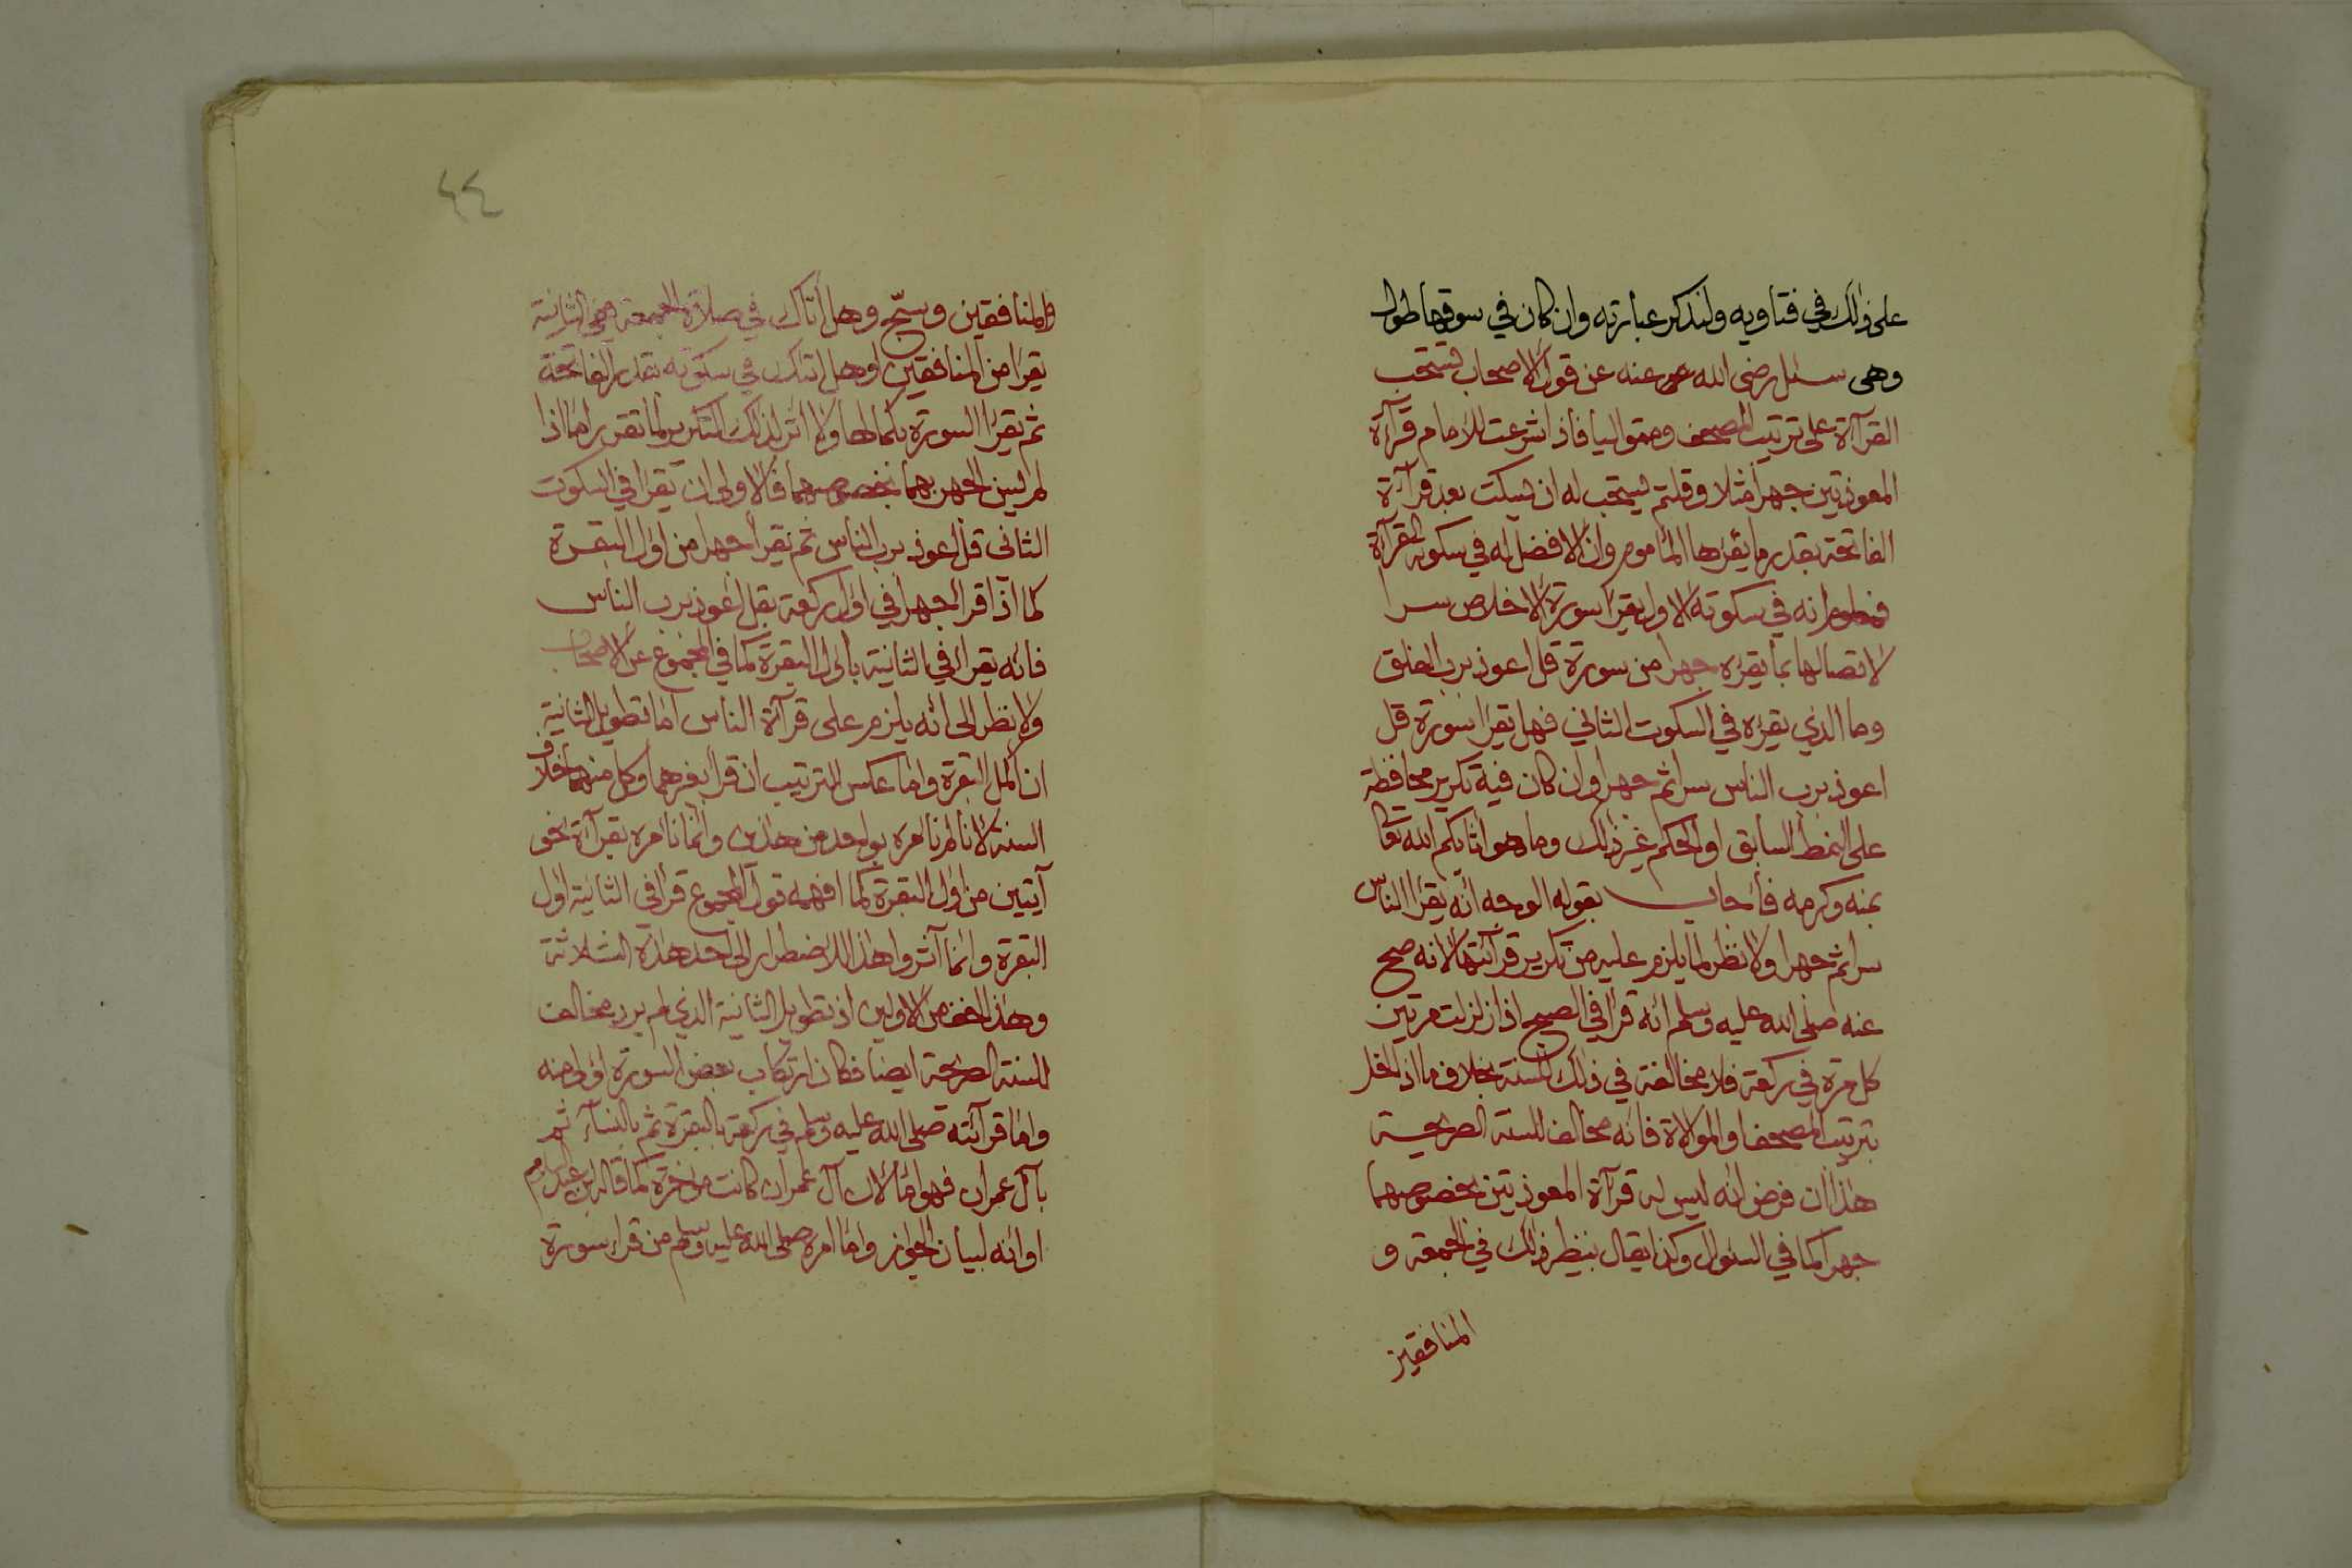 على ذلك في فتاويه ولنذكر عبارته وان كان في سوقها طول
وهى سئل رضى الله عنه عن قول الاصحاب تستحب
القرآة على ترتيب المصحف ومتواليا فاذا شرعت للامام قرآة
المعوذتين جهرا مثلا وقلتم يستحب له ان يسكت بعد قرآة
الفاتحة بقدر ما يقرءها المأموم وان الافضل له في سكوته القرآة
انه في سكوته الاول يقرا سورة الاخلاص سرا
لاتصالها بما يقرءه جهرا من سورة قل اعوذ برب الفلق
وما الذي يقرءه في السكوت الثاني فهل يقرا سورة قل
اعوذ برب الناس سرا ثم جهرا وان كان فيه تكرير محافظة
على النمط السابق او الحكم غير ذلك وما هو اثابكم الله تعا
بمنه وكرمه فأجاب بقوله الوجه انه يقرا الناس
سرا ثم جهرا ولا نظر لما يلزم عليه من تكرير قرآئتها لانه صح
عنه صلى الله عليه وسلم انه قرأ في الصبح اذا زلزلت مرتين
كل مرة في ركعة فلا مخالفة في ذلك للسنة بخلاف ما اذا اخل
بترتيب المصحف او الموالاة فانه مخالف للسنة الصريحة
هذا ان فرض انه ليس له قرآة المعوذتين بخصوصهما
جهرا كما في السئوال وكذا يقال بنظير ذلك في الجمعة و
المنافقين
٤٤
والمنافقين وسبّح وهل أتاك في صلاة الجمعة ففي الثانية
يقرا من المنافقين او هل اتتك في سكوته بقدر الفاتحة
ثم يقرا السورة بكمالها ولا اثر لذلك التكرير لما تقرر اما اذا
لم يسن الجهر بهما بخصوصهما فالاولى ان يقرا في السكوت
الثانى قل اعوذ برب الناس ثم يقرأ جهرا من اول البقرة
كما اذا قرا جهرا في اول ركعة بقل اعوذ برب الناس
فانه يقرا في الثانية باول البقرة كما في المجموع عن الاصحاب
ولا نظر الى انه يلزم على قرآة الناس اما تطويل الثانية
ان اكمل البقرة واما عكس الترتيب ان قرا بغيرهما وكل منهما خلاف
السنة لانا لم نامره بواحد من هذين وانما نامره بقرآة نحو
آيتين من اول البقرة كما افهمه قول المجموع قرا في الثانية اول
البقرة وانما آثروا هذا للاضطرار الى احد هذه الثلاثة
وهذا اخف من الاولين اذ تطويل الثانية الذي لم يرد مخالف
للسنة الصريحة ايضا فكان ارتكاب بعض السورة اولى منه
واما قرآئته صلى الله عليه وسلم في ركعة بالبقرة ثم بالنسآء ثم
بآل عمران فهو اما لان آل عمران كانت مؤخرة كما قاله ابن عبد السلام
او انه لبيان الجواز واما امره صلى الله عليه وسلم من قراء سورة